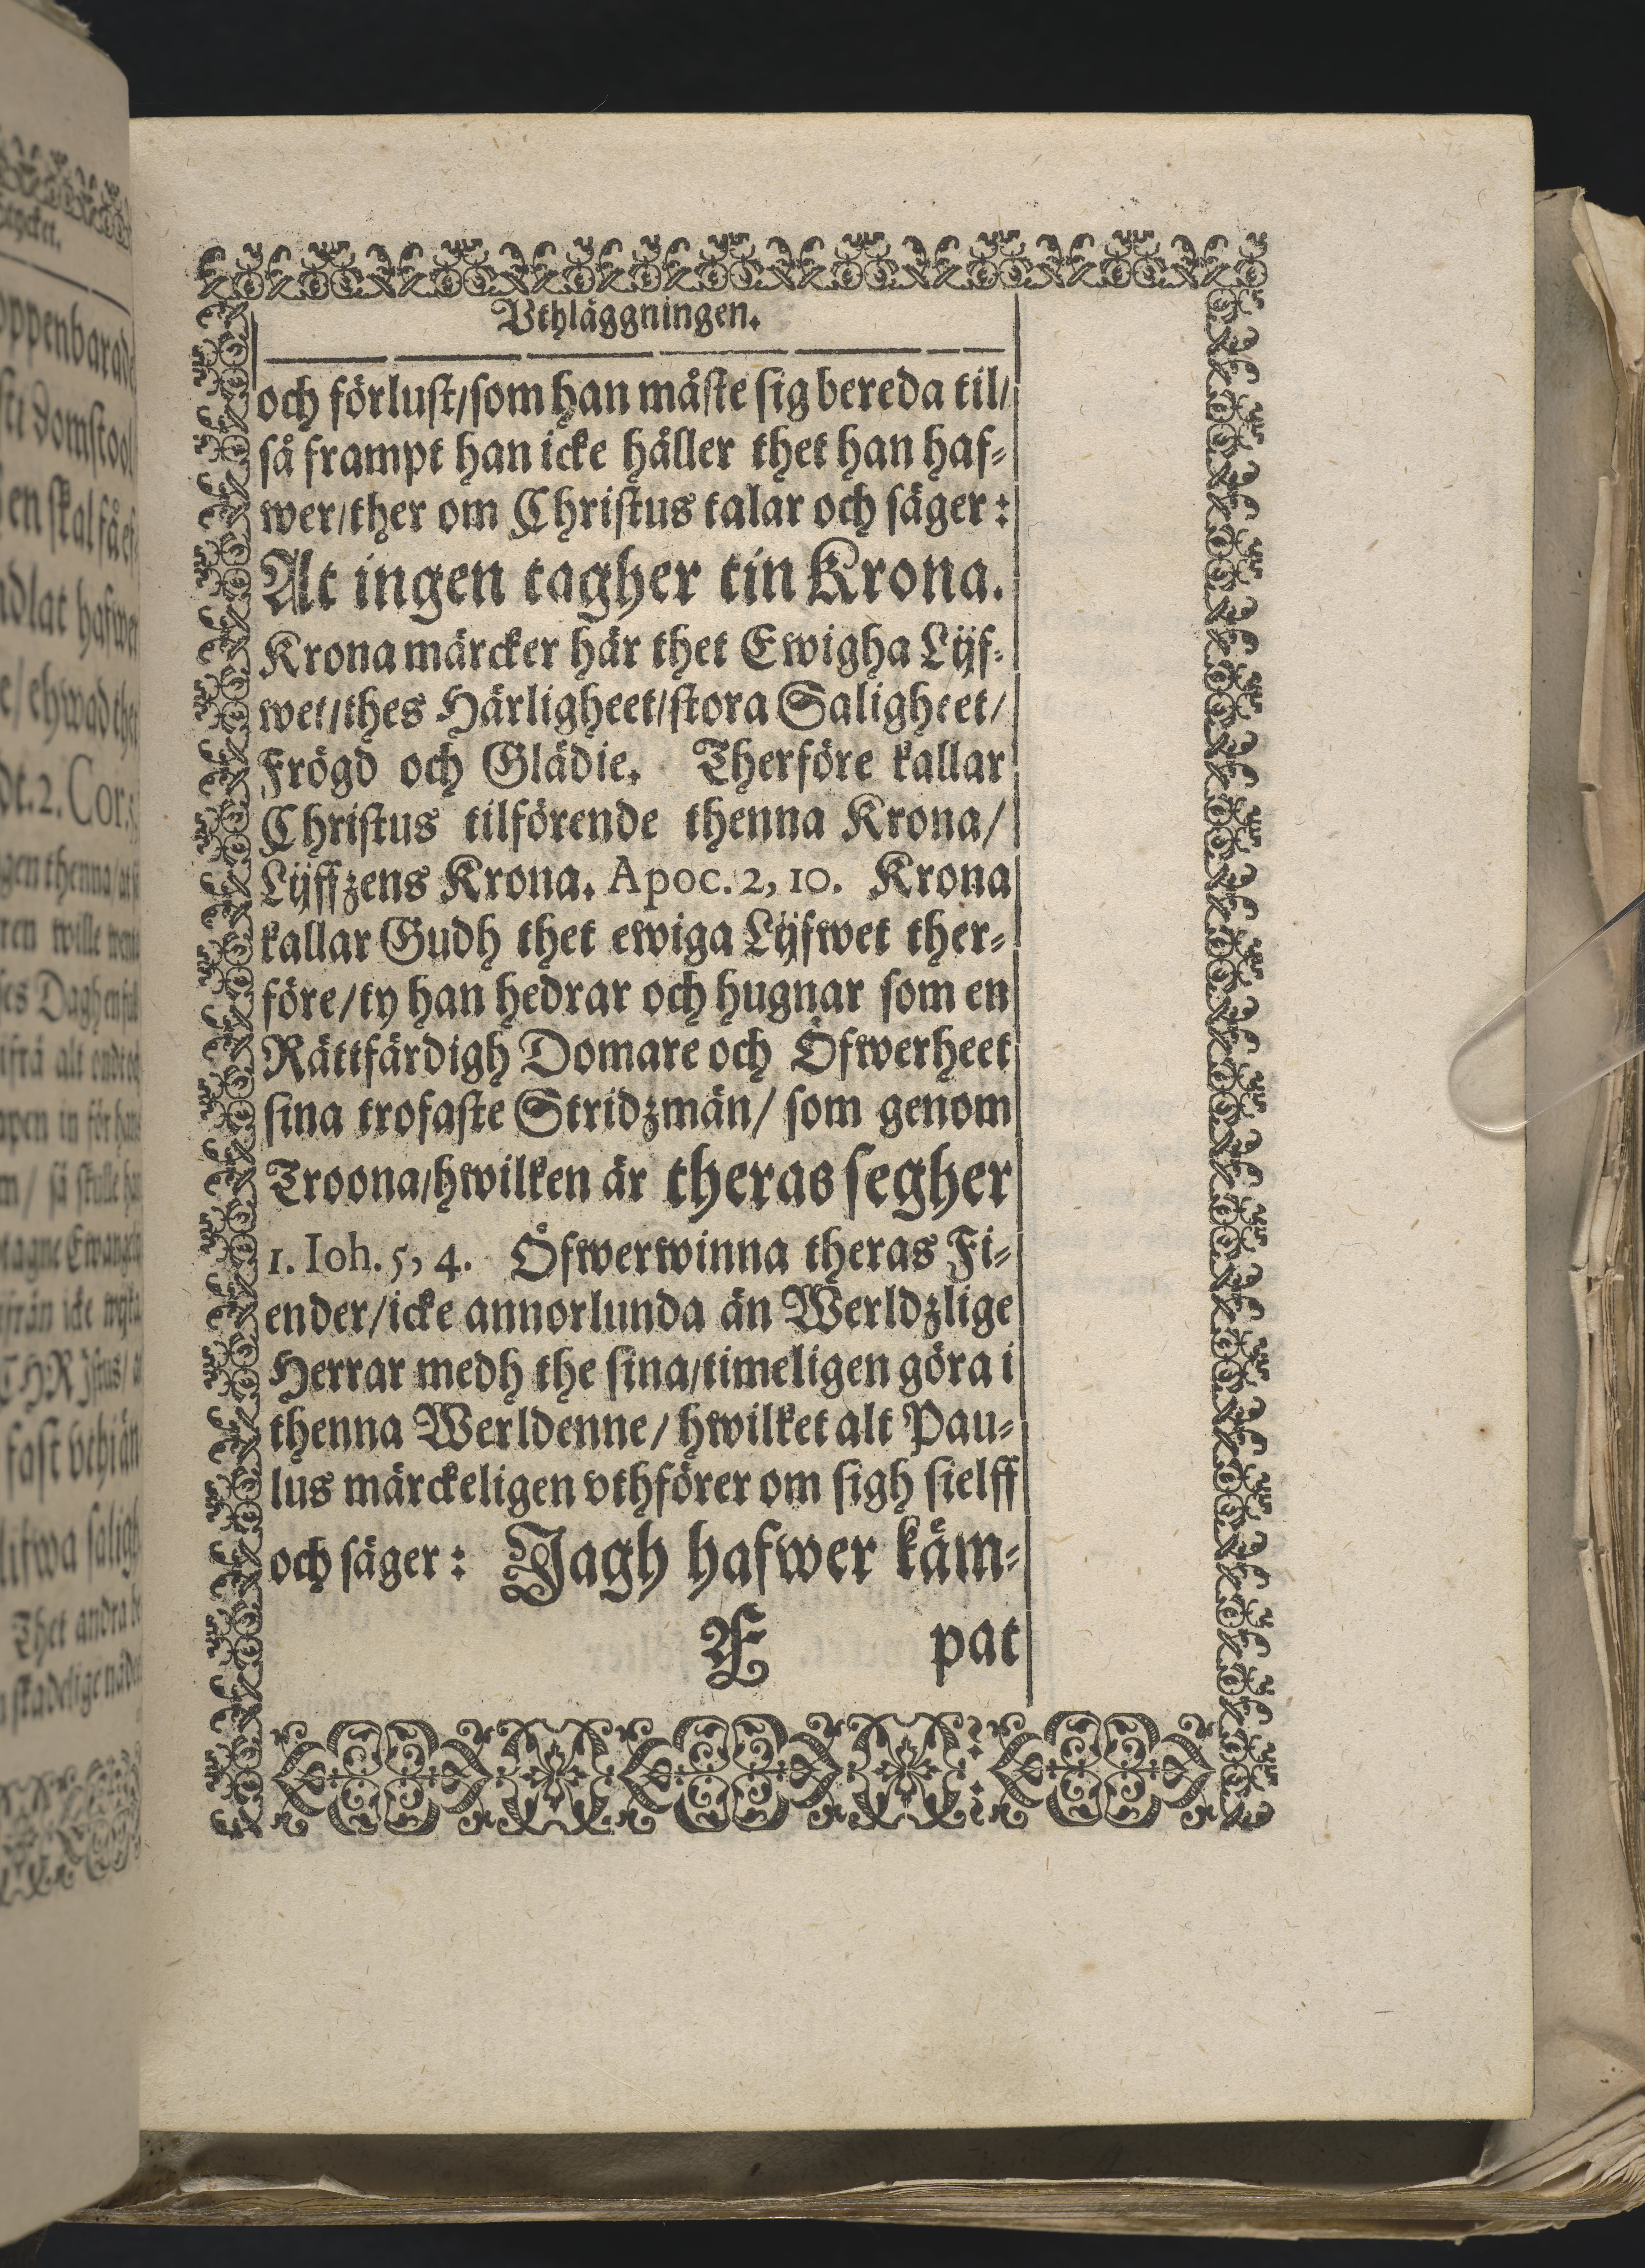 Vthläggningen.
och förlust/som han måste sig bereda til/
så frampt han icke håller thet han haf-
wer/ther om Christus talar och säger:
At ingen tagher tin Krona.
Krona märcker här thet Ewigha Lijf-
wet/thes Härligheet/stora Saligheet/
Frögd och Glädie. Therföre kallar
Christus tilförende thenna Krona/
Lijffzens Krona. Apoc. 2, 10. Krona
kallar Gudh thet ewiga Lijfwet ther-
före/ty han hedrar och hugnar som en
Rättfärdigh Domare och Öfwerheet
sina trofaste Stridzmän/ som genom
Troona/hwilken är theras segher
1. Ioh. 5, 4. Öfwerwinna theras Fi-
ender/icke annorlunda än Werldzlige
Herrar medh the sina/timeligen göra i
thenna Werldenne/ hwilket alt Pau-
lus märckeligen vthförer om sigh sielff
och säger: Jagh hafwer käm-
Æ pat